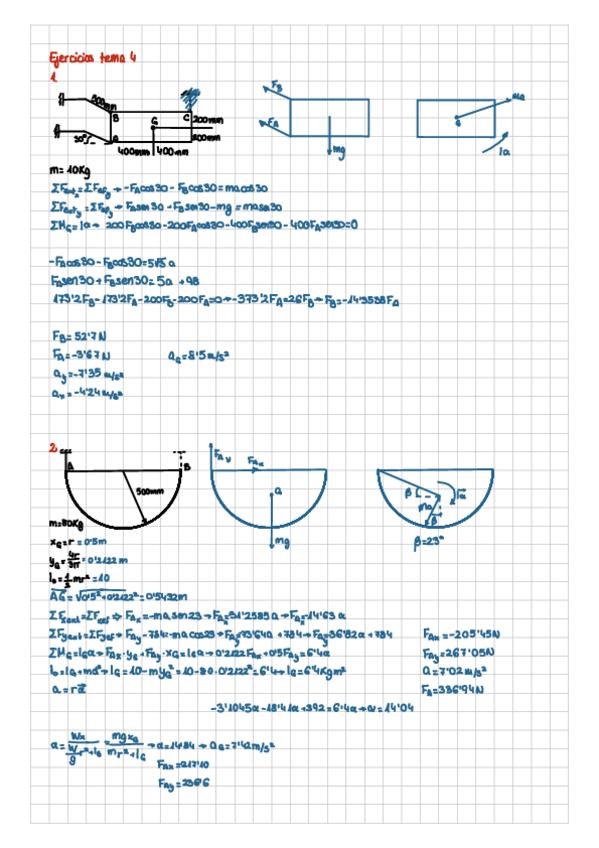 Ejercicios tema 4
1.
500mm
B
G
C
200mm
30°
A
200mm
400mm 400mm
F_B
F_A
mg
G
ma
Iα
m=10Kg
ΣFext_x=ΣFef_x → -F_Acos30-F_Bcos30=macos30
ΣFext_y=ΣFef_y → F_Asen30+F_Bsen30-mg=masen30
ΣM_G=Iα → 200F_Bcos30-200F_Acos30-400F_Bsen30-400F_Asen30=0
-F_Acos30-F_Bcos30=5√3a
F_Asen30+F_Bsen30=5a+98
173'2F_B-173'2F_A-200F_B-200F_A=0 → -373'2F_A=26F_B → F_B=-14'3538F_A
F_B=52'7N
F_A=-3'67N
a_G=8'5m/s²
a_y=-7'35m/s²
a_x=-4'24m/s²
2.
A
B
500mm
F_Ay
F_Ax
G
mg
β
ma
Iα
β
β=23°
m=80Kg
x_G=r=0'5m
y_G=4r/3π=0'2122m
I_0=1/2mr²=10
AG=√0'5²+0'2122²=0'5432m
ΣFxext=ΣFxef → F_Ax=-masen23 → F_Ax=31'2585a → F_Ax=-14'63α
ΣFyext=ΣFyef → F_Ay-784=-macos23 → F_Ay=73'64a+784 → F_Ay=36'82α+784
ΣM_G=I_Gα → F_Ax·y_G+F_Ay·x_G=I_Gα → 0'2122F_Ax+0'5F_Ay=6'4α
I_0=I_G+md² → I_G=10-my_G²=10-80·0'2122²=6'4 → I_G=6'4Kgm²
a=rα
F_Ax=-205'45N
F_Ay=267'05N
a=7'02m/s²
F_A=336'94N
-3'1045α-18'41α+392=6'4α → α=14'04
α=Wx/(W/g r²+I_G)=mgx_G/(mr²+I_G) → α=14'84 → a_G=7'42m/s²
F_Ax=217'10